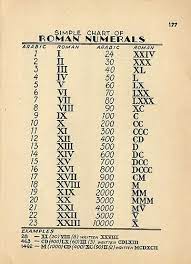 177
SIMPLE CHART OF
ROMAN NUMERALS
ARABIC ROMAN ARABIC ROMAN
1 I 24 XXIV
2 II 30 XXX
3 III 40 XL
4 IV 50 L
5 V 60 LX
6 VI 70 LXX
7 VII 80 LXXX
8 VIII 90 XC
9 IX 100 C
10 X 200 CC
11 XI 300 CCC
12 XII 400 CD
13 XIII 500 D
14 XIV 600 DC
15 XV 700 DCC
16 XVI 800 DCCC
17 XVII 900 CM
18 XVIII 1000 M
19 XIX 2000 MM
20 XX 3000 MMM
21 XXI 4000 MV̅
22 XXII 5000 V̅
23 XXIII 10000 X̅
EXAMPLES
28 — XX (20) VIII (8) WRITTEN XXVIII
443 — CD (400) XL (40) III (3) WRITTEN CDXLIII
1492 — M (1000) CD (400) XC (90) II (2) WRITTEN MCDXCII